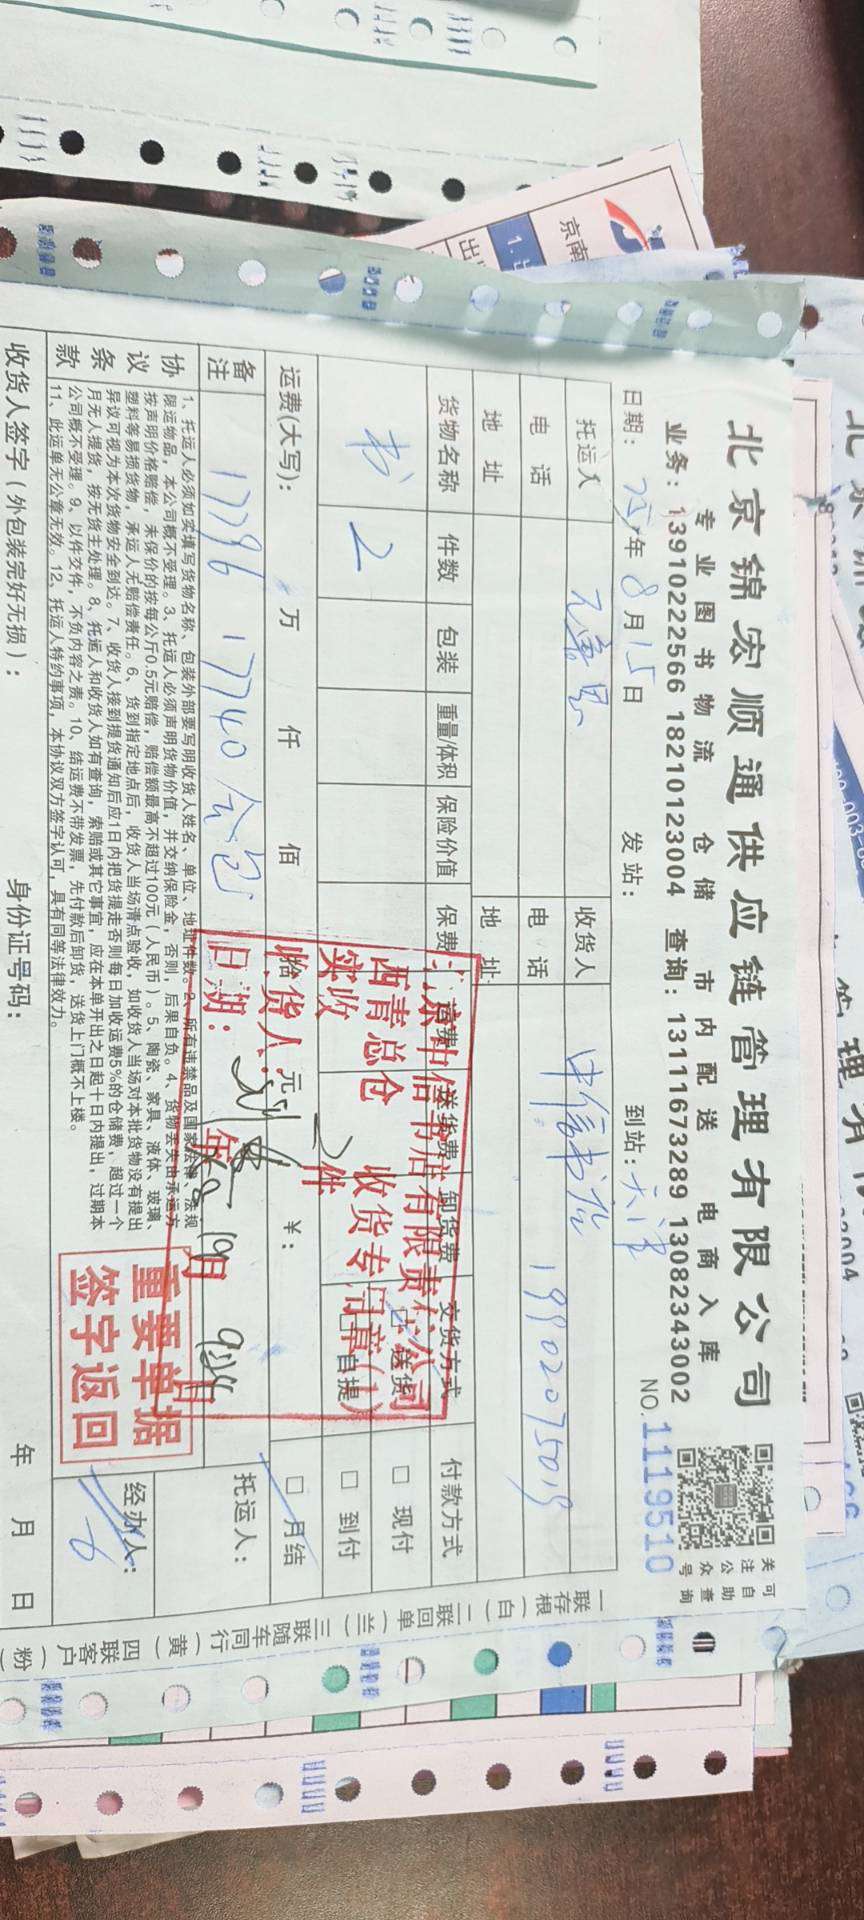 北京锦宏顺通供应链管理有限公司
专业图书物流 仓储 市内配送 电商入库
业务：13910222566 18210123004 查询：13111673289 13082343002
NO.1119510
关注公众号
可自助查询
日期：25年8月15日 发站： 到站：天津
托运人 收货人 中信书店
电话 电话 19902075019
地址 地址
货物名称 件数 包装 重量/体积 保险价值 保费 运费 送货费 卸货费 交货方式 付款方式
书 2 送货 自提 □ 现付 □ 到付 □ 月结
运费(大写)： 万 仟 佰 拾 元 ¥：
备注 17796 17740 合包
托运人：
经办人：
协议条款
1、托运人必须如实填写货物名称、包装外部要写明收货人姓名、单位、地址件数。2、所有违禁品及国家法律、法规
限运物品，本公司概不受理。3、托运人必须声明货物价值，并交纳保险金，否则，后果自负。4、货物丢失由承运方
按声明价格赔偿，未保价的按每公斤0.5元赔偿，赔偿额最高不超过100元（人民币）。5、陶瓷、家具、液体、玻璃、
塑料等易损货物，承运人无赔偿责任。6、货到指定地点后，收货人当场清点验收，如收货人当场对本批货物没有提出
异议可视为本次货物安全到达。7、收货人接到提货通知后应1日内把货提走否则每日加收运费5%的仓储费，超过一个
月无人提货，按无货主处理。8、托运人和收货人如有查询，索赔或其它事宜，应在本单开出之日起十日内提出，过期本
公司概不受理。9、以件交件，不负内容之责。10、结运费不带发票，先付款后卸货，送货上门概不上楼。
11、此运单无公章无效。12、托运人特约事项，本协议双方签字认可，具有同等法律效力。
收货人签字（外包装完好无损）： 身份证号码： 年 月 日
北京中信书店有限责任公司
西青总仓 收货专用章(1)
实收 2 件
收货人：
日期： 年 月 日
重要单据
签字返回
一联存根（白）二联回单（兰）三联随车同行（黄）四联客户（粉
京南